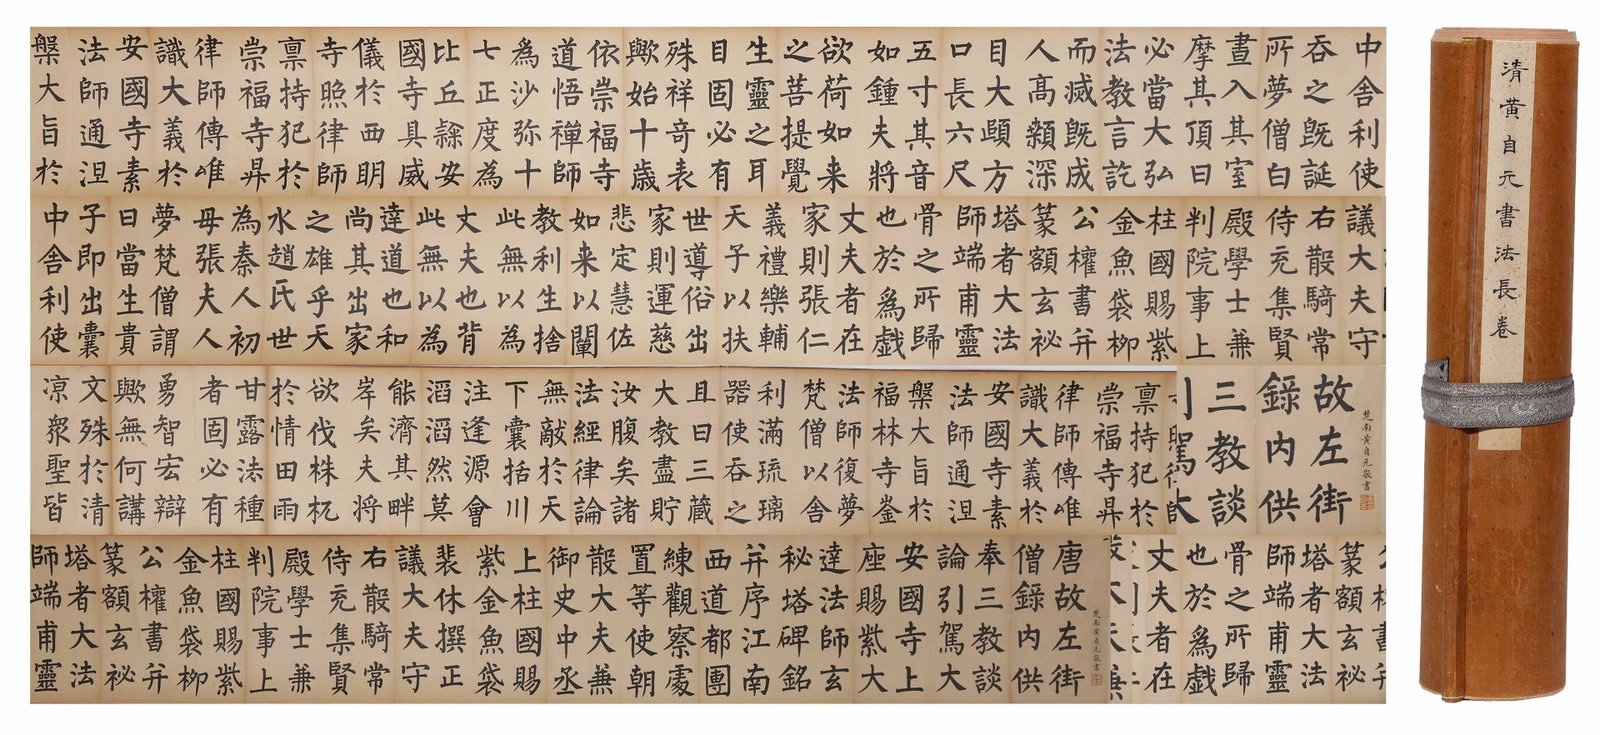 中舍利使
吞之既誕
所夢僧白
晝入其室
摩其頂曰
必當大弘
法教言訖
而滅既成
人高顙深
目大頤方
口長六尺
五寸其音
如鍾夫將
欲荷如来
之菩提覺
生靈之耳
目固必有
殊祥奇表
歟始十歳
依崇福寺
道悟禪師
為沙弥十
七正度為
比丘隸安
國寺具威
儀於西明
寺照律師
禀持犯於
崇福寺昇
律師傳唯
識大義於
安國寺素
法師通涅
槃大旨於
議大夫守
右散騎常
侍充集賢
殿學士兼
判院事上
柱國賜紫
金魚袋柳
公權書并
篆額玄祕
塔者大法
師端甫靈
骨之所歸
也於為戯
丈夫者在
家則張仁
義禮樂輔
天子以扶
世導俗出
家則運慈
悲定慧佐
如来以闡
教利生捨
此無以為
丈夫也背
此無以為
達道也和
尚其出家
之雄乎天
水趙氏世
為秦人初
母張夫人
夢梵僧謂
曰當生貴
子即出囊
中舍利使
楚南黄自元敬書
故左街
錄内供
三教談
引駕大
禀持犯於
崇福寺昇
律師傳唯
識大義於
安國寺素
法師通涅
槃大旨於
福林寺崟
法師復夢
梵僧以舍
利滿琉璃
器使吞之
且曰三藏
大教盡貯
汝腹矣諸
法經律論
無敵於天
下囊括川
注逢源會
滔滔然莫
能濟其畔
岸矣夫將
欲伐株杌
於情田雨
甘露法種
者固必有
勇智宏辯
歟無何講
文殊於清
凉衆聖皆
篆額玄祕
塔者大法
師端甫靈
骨之所歸
也於為戯
丈夫者在
楚南黄自元敬書
唐故左街
僧錄内供
奉三教談
論引駕大
安國寺上
座賜紫大
達法師玄
秘塔碑銘
并序江南
西道都團
練觀察處
置等使朝
散大夫兼
御史中丞
上柱國賜
紫金魚袋
裴休撰正
議大夫守
右散騎常
侍充集賢
殿學士兼
判院事上
柱國賜紫
金魚袋柳
公權書并
篆額玄祕
塔者大法
師端甫靈
清黄自元書法長卷